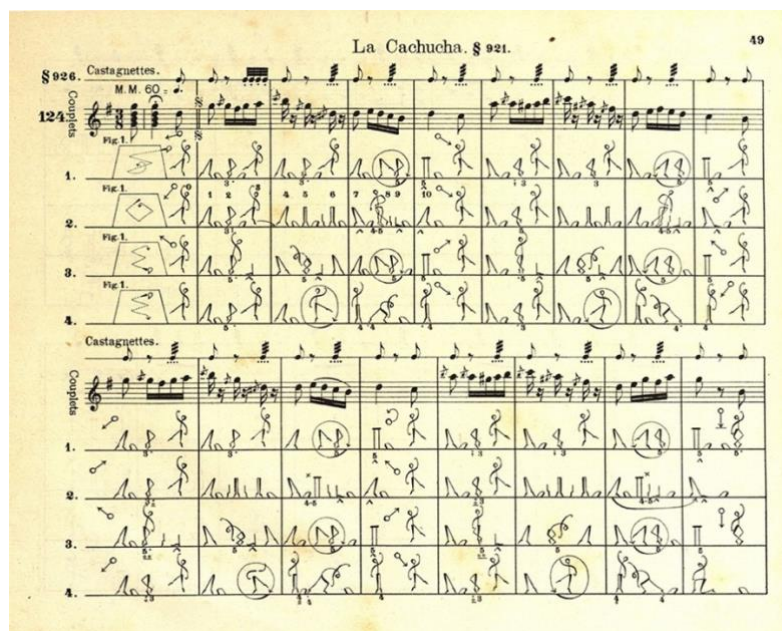 49
La Cachucha. § 921.
§ 926. Castagnettes.
M.M. 60 =
124.
Couplets
Fig. 1.
1.
Fig. 1.
1 2 4 5 6 7 8 9 10
2.
Fig. 1.
3.
Fig. 1.
4.
Castagnettes.
Couplets
1.
2.
3.
4.